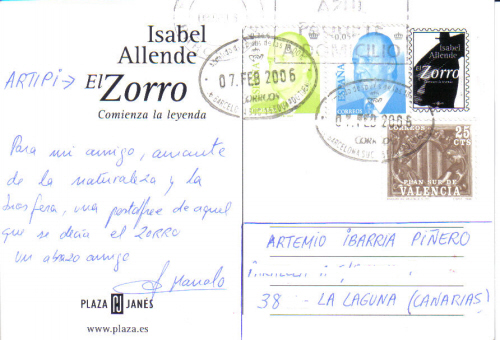 Isabel
Allende
ARTIPI→
El Zorro
Comienza la leyenda
Para mi amigo, amante
de la naturaleza y la
biosfera, una postalfree de aquel
que se decía el ZORRO
un abrazo amigo
Manolo
PLAZA JANÉS
www.plaza.es
DOMICILIO
07.FEB 2006
BARCELONA SUC.
ESPAÑA
CORREOS
Isabel
Allende
Zorro
07.FEB 2006
BARCELONA SUC.
CORREOS
25
CTS
PLAN SUR DE
VALENCIA
ARTEMIO IBARRIA PIÑERO
38 - LA LAGUNA (CANARIAS)